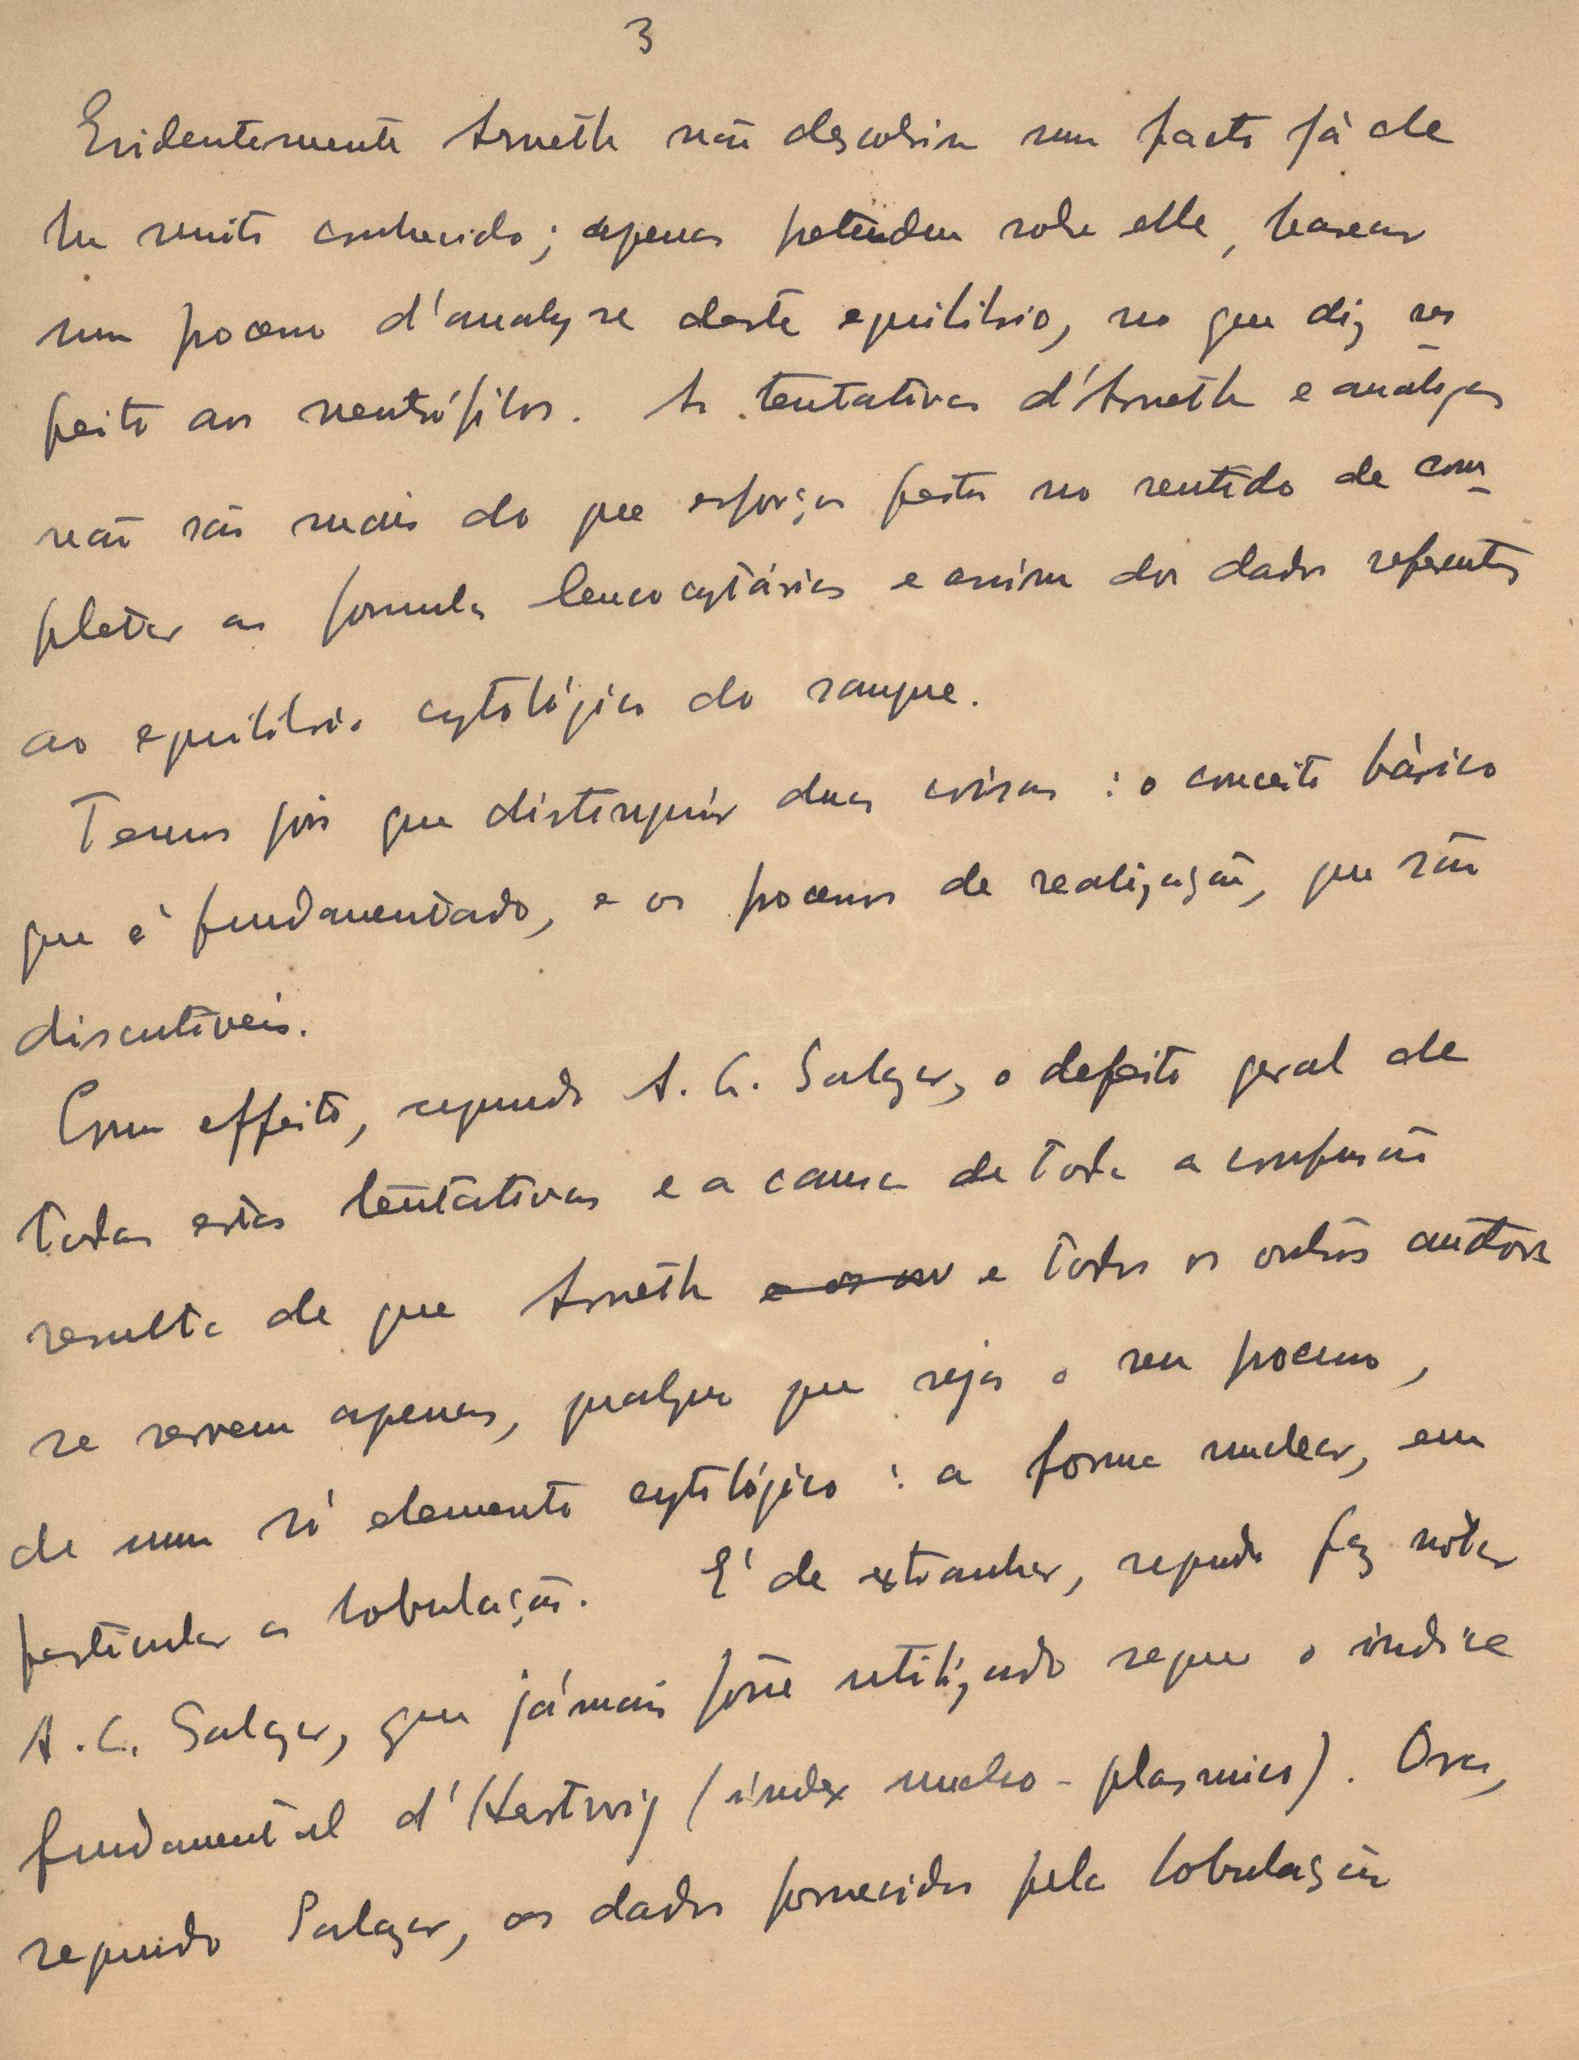 3
Evidentemente Arneth não descobriu um facto já de
ha muito conhecido; apenas pretendeu sobre elle, basear
um processo d'analyse deste equilibrio, no que diz res
peito aos neutrófilos. As tentativas d'Arneth e analogas
não são mais do que esforços feitos no sentido de com-
pletar as formulas leucocytárias e assim dos dados referentes
ao equilibrio cytológico do sangue.
Temos pois que distinguir duas coisas: o conceito básico
que é fundamentado, e os processos de realização, que são
discutiveis.
Com effeito, segundo A. C. Salazar, o defeito geral de
todas estas tentativas e a causa de toda a confusão
resulta de que Arneth e os ou e todos os outros auctores
se servem apenas, qualquer que seja o seu processo,
de um só elemento cytológico: a forma nuclear, em
particular a lobulação. É de extranhar, segundo faz notar
A. C. Salazar, que jámais fosse utilizado sequer o indice
fundamental d'Hertwig (index nucleo-plasmico). Ora,
segundo Salazar, os dados fornecidos pela lobulação